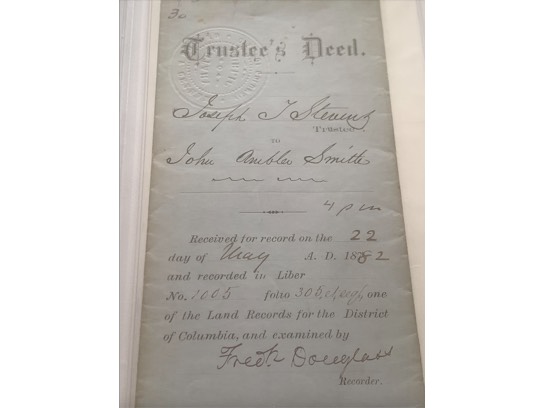 30
Trustee's Deed.
Joseph T Stevens
Trustee.
TO
John Ambler Smith
4 p m
Received for record on the 22
day of May A. D. 1882
and recorded in Liber
No. 1005 folio 306 et seq, one
of the Land Records for the District
of Columbia, and examined by
Fredk Douglass
Recorder.